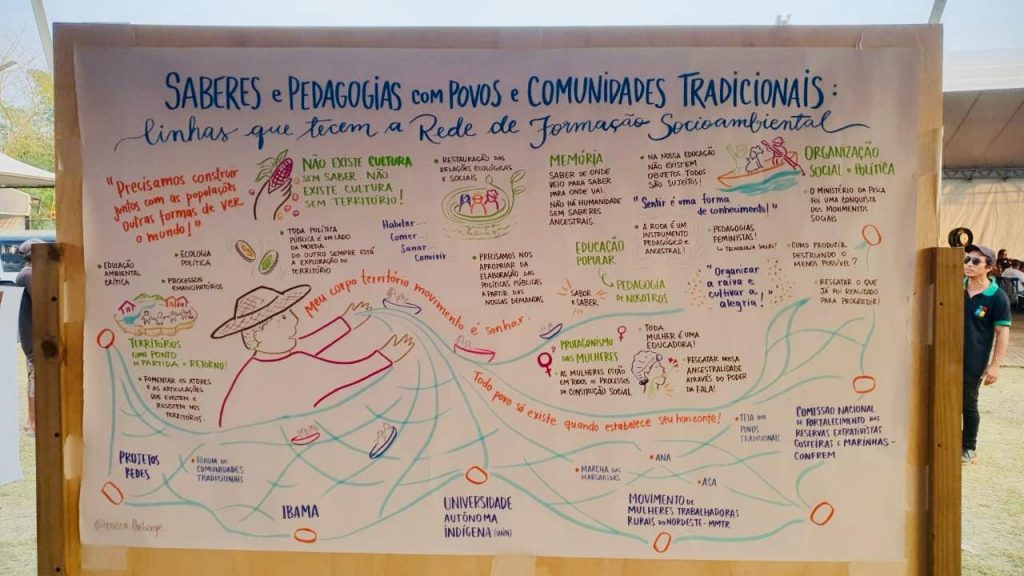 SABERES e PEDAGOGIAS com POVOS e COMUNIDADES TRADICIONAIS:
linhas que tecem a Rede de Formação Socioambiental
"Precisamos construir
juntos com as populações
outras formas de ver
o mundo!"
NÃO EXISTE CULTURA
SEM SABER. NÃO
EXISTE CULTURA
SEM TERRITÓRIO!
• RESTAURAÇÃO DAS
RELAÇÕES ECOLÓGICAS
E SOCIAIS
MEMÓRIA
SABER DE ONDE
VEIO PARA SABER
PARA ONDE VAI.
NÃO HÁ HUMANIDADE
SEM SABERES
ANCESTRAIS.
• NA NOSSA EDUCAÇÃO
NÃO EXISTEM
OBJETOS TODOS
SÃO SUJEITOS!
ORGANIZAÇÃO
SOCIAL e POLÍTICA
O MINISTÉRIO DA PESCA
FOI UMA CONQUISTA
DOS MOVIMENTOS
SOCIAIS
"Sentir é uma forma
de conhecimento!"
• TODA POLÍTICA
PÚBLICA É UM LADO
DA MOEDA.
DO OUTRO SEMPRE ESTÁ
A EXPLORAÇÃO DO
TERRITÓRIO
Habitar...
Comer...
Sanar...
Convivir
• A RODA É UM
INSTRUMENTO
PEDAGÓGICO e
ANCESTRAL!
• PEDAGOGIAS
FEMINISTAS!
↳ TECNOLOGIA SOCIAL!
• COMO PRODUZIR
DESTRUINDO O
MENOS POSSÍVEL?
• EDUCAÇÃO
AMBIENTAL
CRÍTICA
• ECOLOGIA
POLÍTICA
• PROCESSOS
EMANCIPATÓRIOS
• PRECISAMOS NOS
APROPRIAR DA
ELABORAÇÃO DAS
POLÍTICAS PÚBLICAS
A PARTIR DAS
NOSSAS DEMANDAS
EDUCAÇÃO
POPULAR
PEDAGOGIA
DE NOSOTROS
SABOR
e SABER
"Organizar
a raiva e
cultivar a
alegria!"
• RESGATAR O QUE
JÁ FOI REALIZADO
PARA PROGREDIR!
Meu corpo território movimento é sonhar.
TERRITÓRIOS
COMO PONTO
DE PARTIDA e RETORNO!
• FOMENTAR OS ATORES
E AS ARTICULAÇÕES
QUE EXISTEM E
RESISTEM NOS
TERRITÓRIOS.
PROTAGONISMO
DAS MULHERES
• AS MULHERES ESTÃO
EM TODOS OS PROCESSOS
DA CONSTRUÇÃO SOCIAL
• TODA
MULHER É UMA
EDUCADORA!
• RESGATAR NOSSA
ANCESTRALIDADE
ATRAVÉS DO PODER
DA FALA!
Todo povo só existe quando estabelece seu horizonte!
PROJETOS
REDES
• FÓRUM DE
COMUNIDADES
TRADICIONAIS
IBAMA
UNIVERSIDADE
AUTÔNOMA
INDÍGENA (UAIN)
• MARCHA DAS
MARGARIDAS
• ANA
• ACA
• TEIA DOS
POVOS
TRADICIONAIS
MOVIMENTO DE
MULHERES TRABALHADORAS
RURAIS DO NORDESTE - MMTR
COMISSÃO NACIONAL
DE FORTALECIMENTO DAS
RESERVAS EXTRATIVISTAS
COSTEIRAS E MARINHAS -
CONFREM